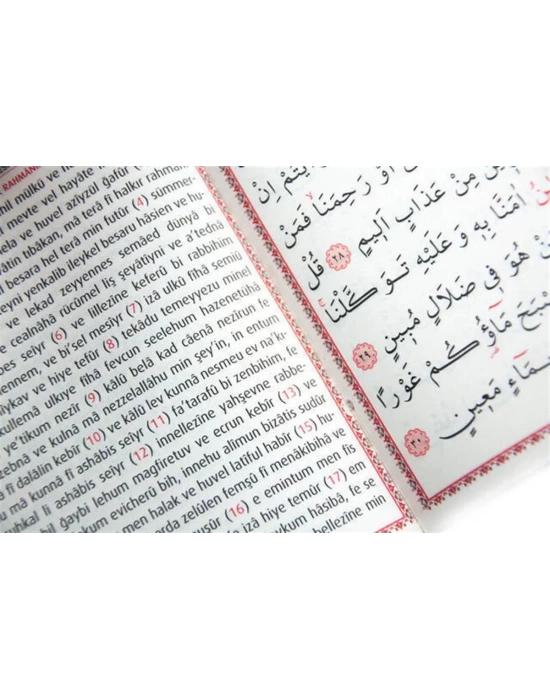 RAHMAN
mülkü ve
mevte vel hayâte
ela ve huvel azîyzül ğafûr
tıbâkan, mâ terâ fî halkır rahmân
besara hel terâ min futûr (4) sümmer-
yenkalib ileykel besaru hâsien ve hu-
ve lekad zeyyennes semâed dünyâ bi
cealnâhâ rücûmel liş şeyâtîyni ve a'tednâ
seîyr (6) ve lillezîne keferû bi rabbihim
ennem, ve bi'sel mesîyr (7) izâ ulkû fîhâ semiû
ve hiye tefûr (8) tekâdu temeyyezu minel
küllemâ ulkıye fîhâ fevcun seelehum hazenetühâ
e'tikum nezîr (9) kâlû belâ kad câenâ nezîrun fe
zebnâ ve kulnâ mâ nezzelallâhu min şey'in, in entum
fî dalâlin kebîr (10) ve kâlû lev kunnâ nesmeu ev na'k-
mâ kunnâ fî ashâbis seîyr (11) fa'tarafû bi zenbihim, fe
uhkal li ashâbis seîyr (12) innellezîne yahşevne rabbe-
bil ğaybi lehum mağfiretuv ve ecrun kebîr (13) ve
kum evicherû bih, innehu alîmun bizâtis sudûr
men halak ve huvel latîful habîr (15) hu-
arda zelûlen femşû fî menâkibihâ ve
nuşûr (16) e emintum men fis
izâ hiye temûr (17) em
aykum hâsibâ, fe se
bellezîne min
يْتُمْ اِنْ
اَوْ رَحِمَنَا فَمَنْ
مِنْ عَذَابٍ اَلِيمٍ ﴿٢٨﴾ قُلْ
اٰمَنَّا بِهِ وَعَلَيْهِ تَوَكَّلْنَا
هُوَ فِي ضَلَالٍ مُبِينٍ ﴿٢٩﴾
مَاؤُكُمْ غَوْرًا
مَعِينٍ ﴿٣٠﴾